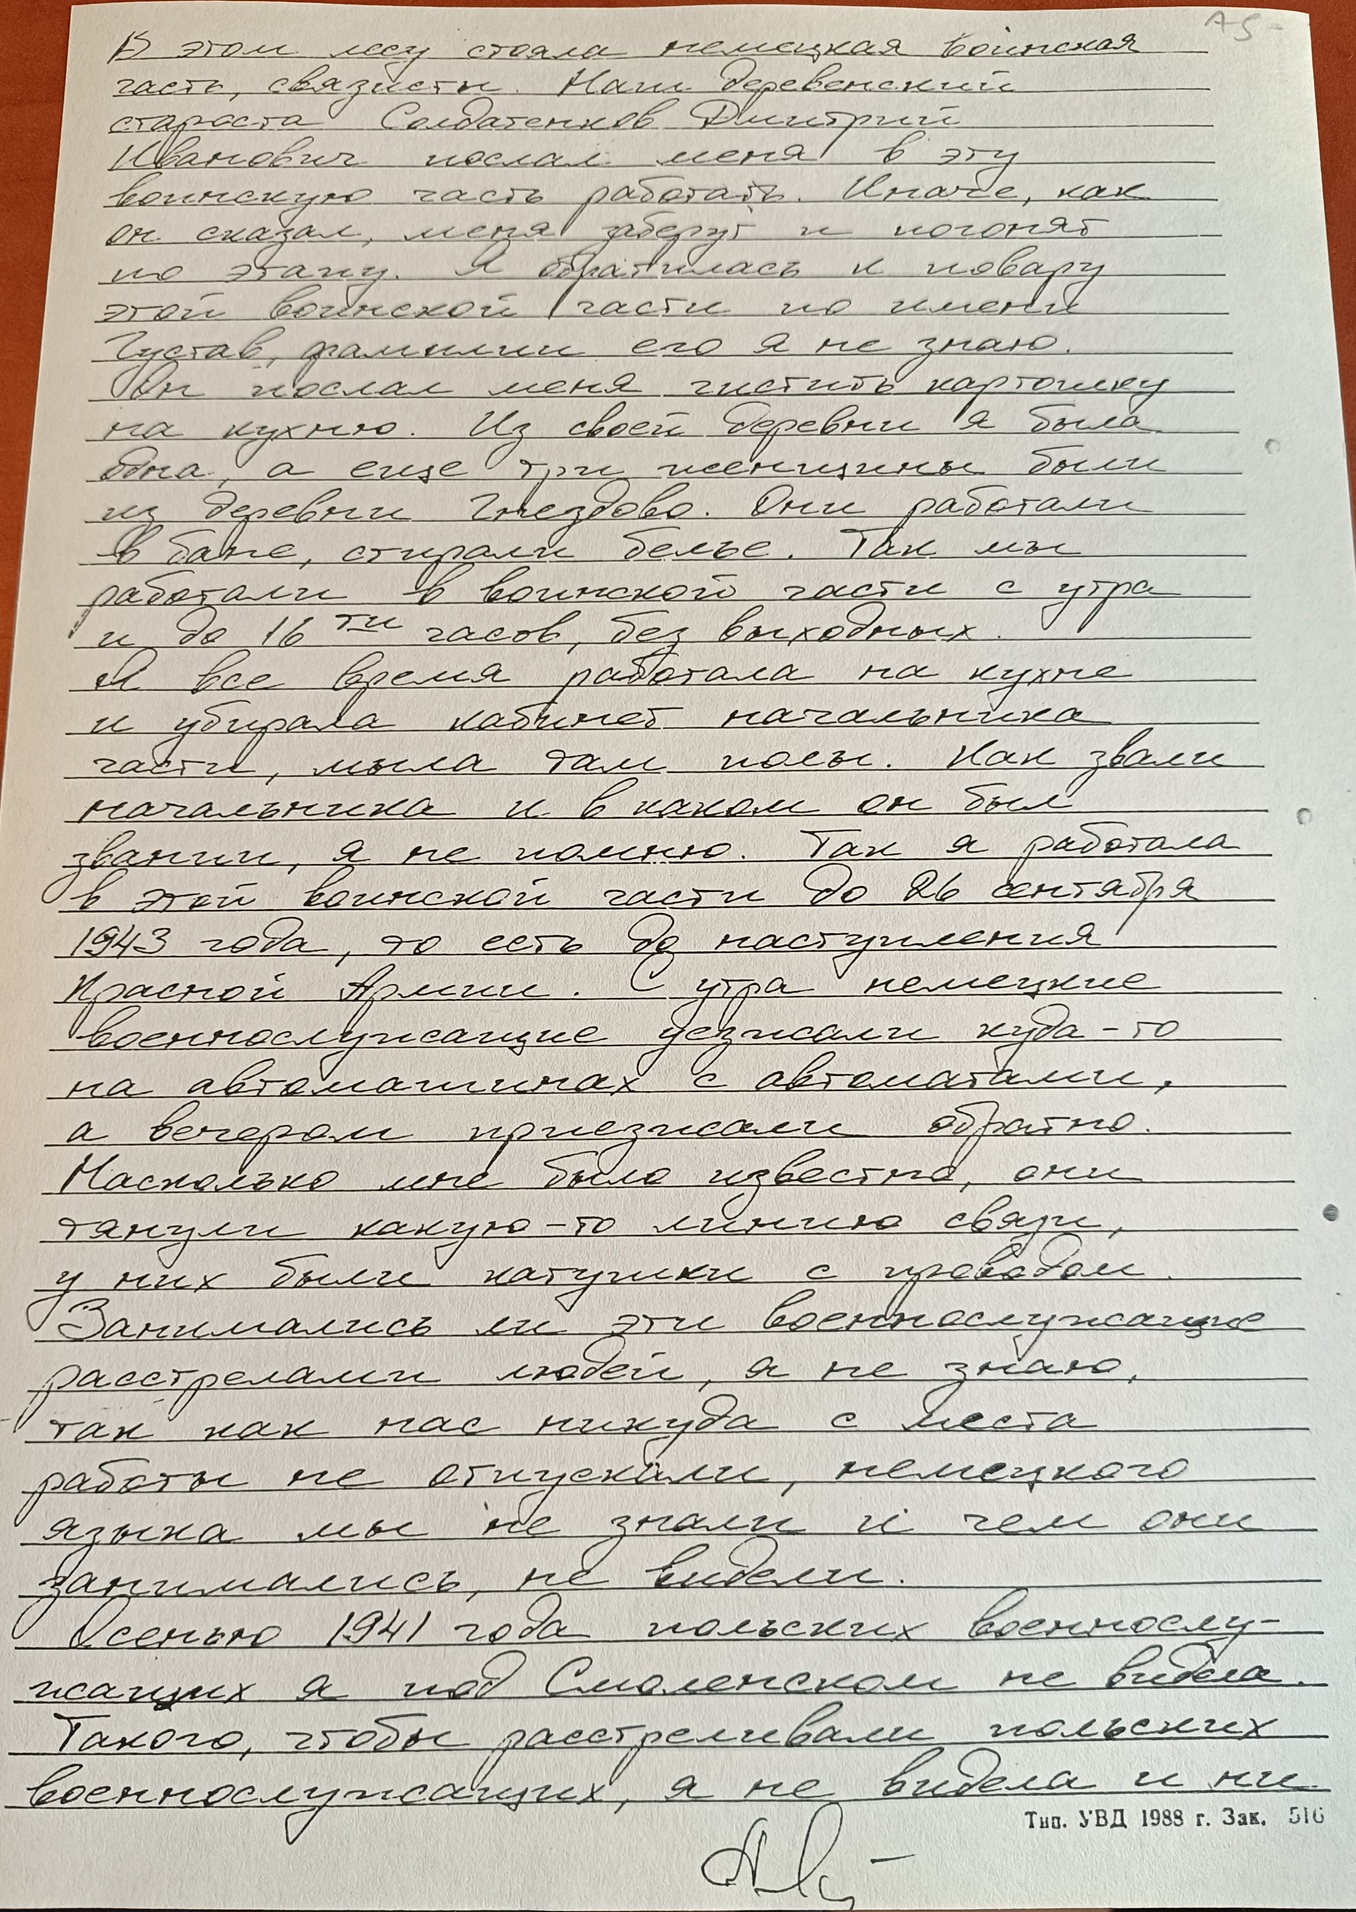 А5-
В этом лесу стояла немецкая воинская
часть, связисты. Наш деревенский
староста Солдатенков Дмитрий
Иванович послал меня в эту
воинскую часть работать. Иначе, как
он сказал, меня заберут и погонят
по этапу. Я обратилась к повару
этой воинской части по имени
Густав, фамилии его я не знаю.
Он послал меня чистить картошку
на кухню. Из своей деревни я была
одна, а еще три женщины были
из деревни Гнездово. Они работали
в бане, стирали белье. Так мы
работали в воинской части с утра
и до 16ти часов, без выходных.
Я все время работала на кухне
и убирала кабинет начальника
части, мыла там полы. Как звали
начальника и в каком он был
звании, я не помню. Так я работала
в этой воинской части до 26 сентября
1943 года, то есть до наступления
Красной Армии. С утра немецкие
военнослужащие уезжали куда-то
на автомашинах с автоматами,
а вечером приезжали обратно.
Насколько мне было известно, они
тянули какую-то линию связи,
у них были катушки с проводом.
Занимались ли эти военнослужащие
расстрелами людей, я не знаю,
так как нас никуда с места
работы не отпускали, немецкого
языка мы не знали и чем они
занимались, не видели.
Осенью 1941 года польских военнослу-
жащих я под Смоленском не видела.
Такого, чтобы расстреливали польских
военнослужащих, я не видела и ни
Тип. УВД 1988 г. Зак. 516